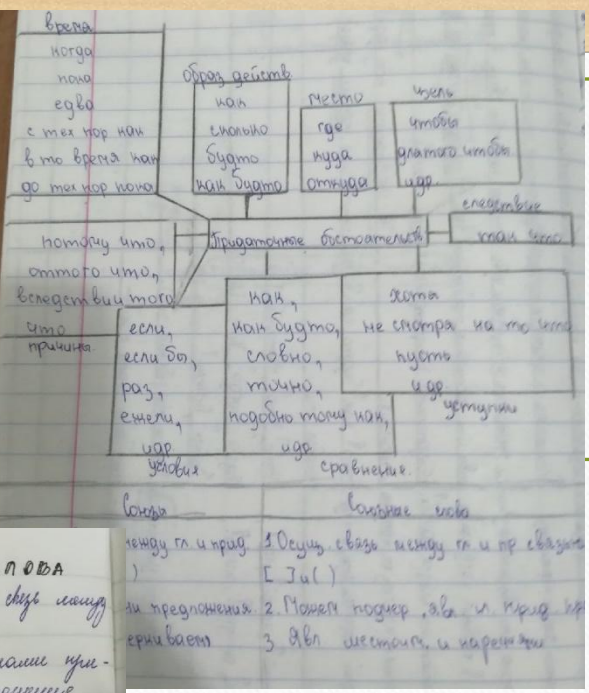 время
когда
пока
едва
с тех пор как
в то время как
до тех пор пока
образ действ.
как
сколько
будто
как будто
место
где
куда
откуда
цель
чтобы
для того чтобы
и др.
следствие
так что
Придаточные обстоятельств.
потому что,
оттого что,
вследствии того
что
причины.
если,
если бы,
раз,
ежели,
и др
условия
как,
как будто,
словно,
точно,
подобно тому как,
и др
сравнение.
хотя
не смотря на то что
пусть
и др.
уступки
Союзы
Союзные слова
между гл. и прид.
)
предложения
1. Осущ. связь между гл и пр
[ ] и ( )
2. Может подчер. явл.
3. Явл местоим. и наречиями
связь между